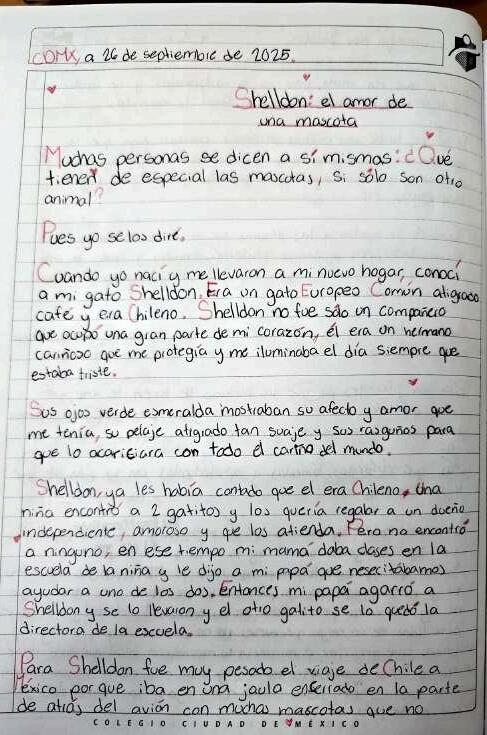 CDMX, a 26 de septiembre de 2025.
Shelldon: el amor de
una mascota
Muchas personas se dicen a sí mismas: ¿Qué
tienen de especial las mascotas, si sólo son otro
animal?
Pues yo selos diré.
Cuando yo nací y me llevaron a mi nuevo hogar, conocí
a mi gato Shelldon. Era un gato Europeo Común atigrado
café y era Chileno. Shelldon no fue sólo un compañero
que ocupó una gran parte de mi corazón, él era un hermano
cariñoso que me protegía y me iluminaba el día siempre que
estaba triste.
Sus ojos verde esmeralda mostraban su afecto y amor que
me tenía, su pelaje atigrado tan suaje y sus rasguños para
que lo acariciara con todo el cariño del mundo.
Shelldon, ya les había contado que el era Chileno. Una
niña encontró a 2 gatitos y los quería regalar a un dueño
independiente, amoroso y que los atienda. Pero no encontró
a ninguno, en ese tiempo mi mamá daba clases en la
escuela de la niña y le dijo a mi papá que nesecitábamos
ayudar a uno de los dos. Entonces mi papá agarró a
Shelldon y se lo llevaron y el otro gatito se lo quedó la
directora de la escuela.
Para Shelldon fue muy pesado el viaje de Chile a
México por que iba en una jaula encerrado en la parte
de atrás del avión con muchas mascotas que no
COLEGIO CIUDAD DE MÉXICO